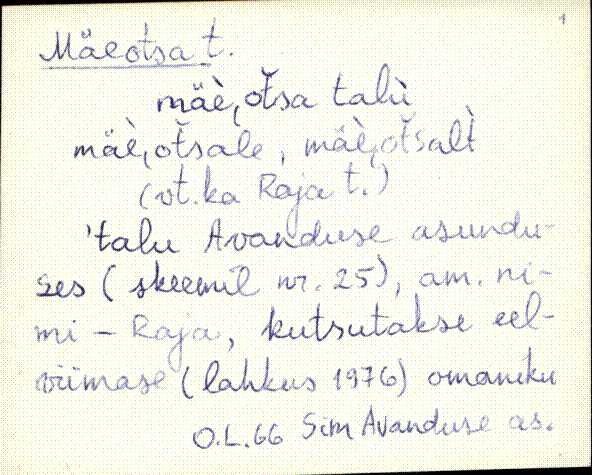 1
Mäeotsa t.
mäè,oťsa talù
mäè,oťsale, mäè,oťsalt̀
(vt. ka Raja t.)
'talu Avanduse asundu-
ses (skeemil nr. 25), am. ni-
mi - Raja, kutsutakse eel-
viimase (lahkus 1976) omaniku
O.L.66 Sim Avanduse as.